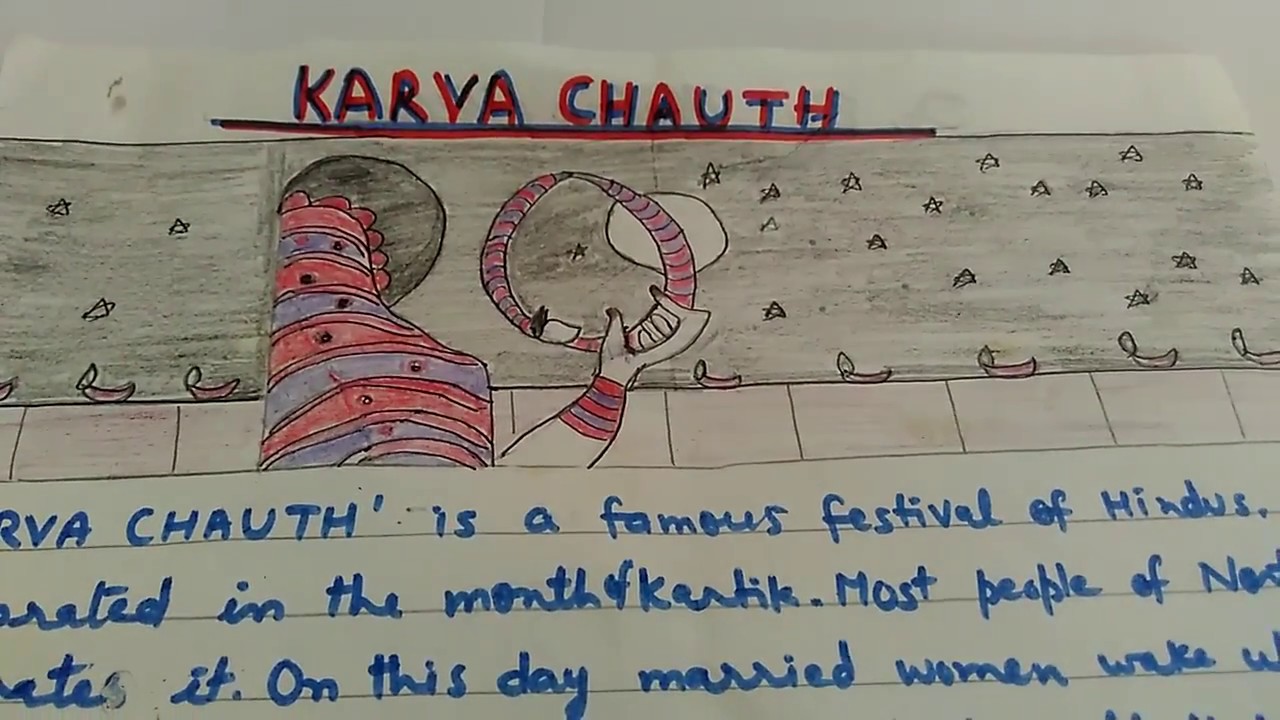 KARVA CHAUTH
RVA CHAUTH' is a famous festival of Hindus.
brated in the month of Kartik. Most people of Nort
rates it. On this day married women wake u